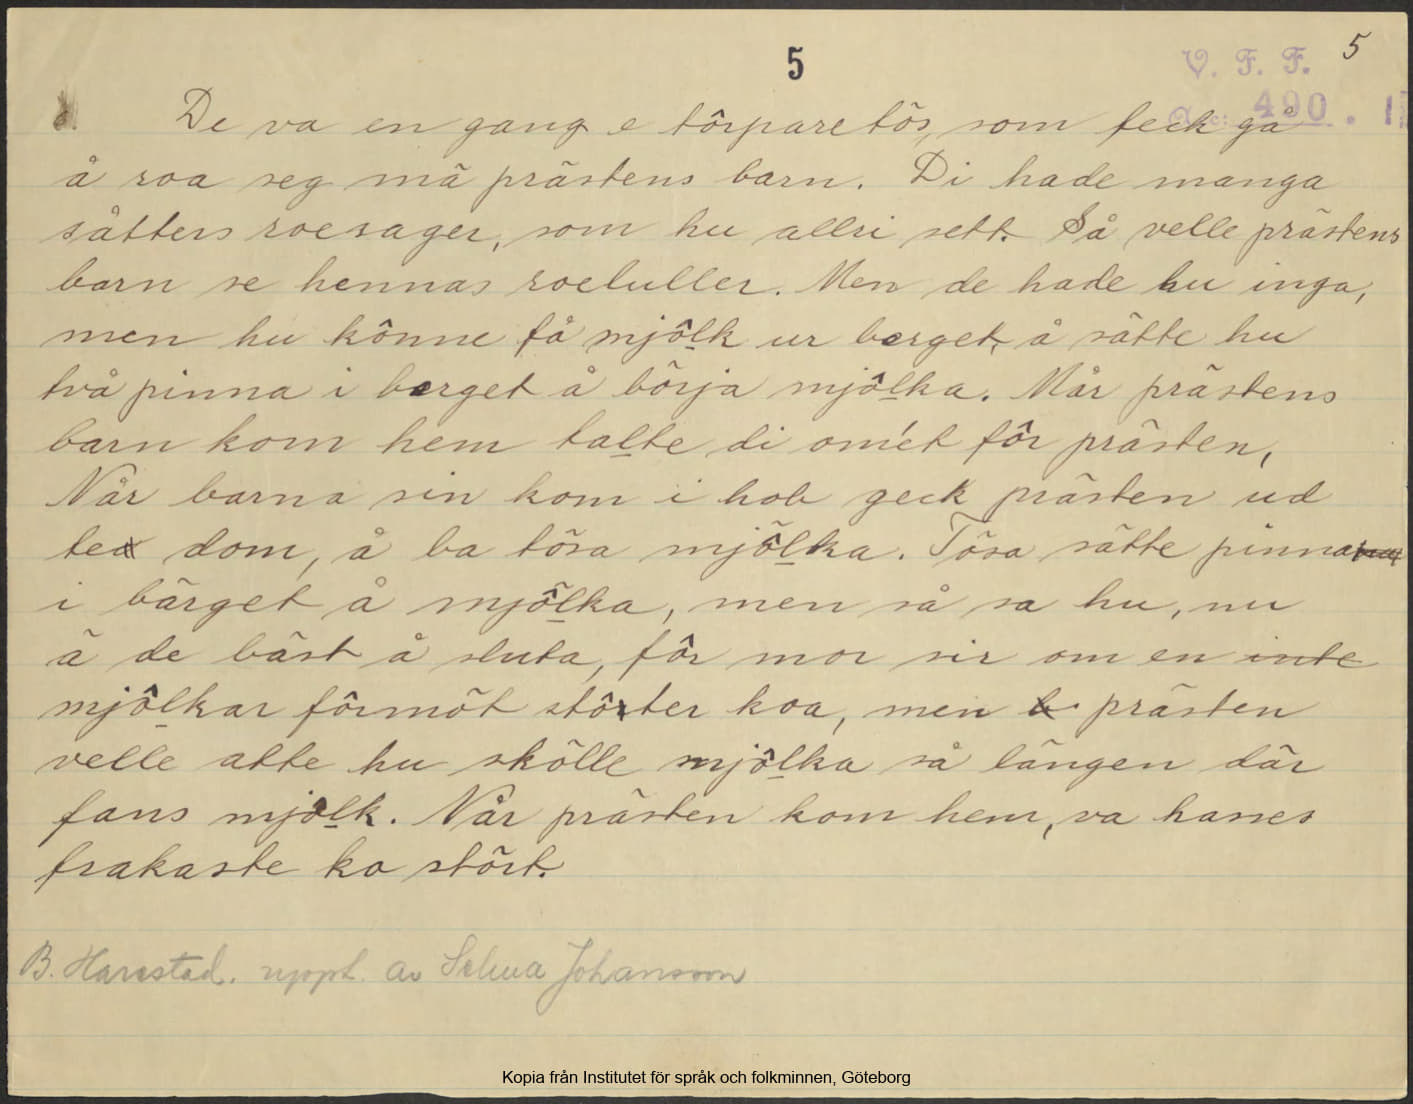 5
5
V. F. F.
490. 1
De va en gang e tôrparetös, som feck gå
å roa seg mä prästens barn. Di hade manga
såtters roesager, som hu allri sett. Så velle prästens
barn se hennas roeluller. Men de hade hu inga,
men hu kônne få mjôlk ur berget, å sätte hu
två pinna i berget å börja mjôlka. Når prästens
barn kom hem talte di om'et fôr prästen,
Når barna sin kom i hob geck prästen ud
te dom, å ba tösa mjôlka. Tösa sätte pinna
i bärget å mjôlka, men så sa hu, nu
ä de bäst å sluta, fôr mor sir om en inte
mjôlkar fôrmöt stôrter koa, men prästen
velle atte hu skölle mjôlka så längen där
fans mjôlk. Når prästen kom hem, va hanses
frakaste ko stört.
B. Harestad. uppt. av Selma Johansson
Kopia från Institutet för språk och folkminnen, Göteborg